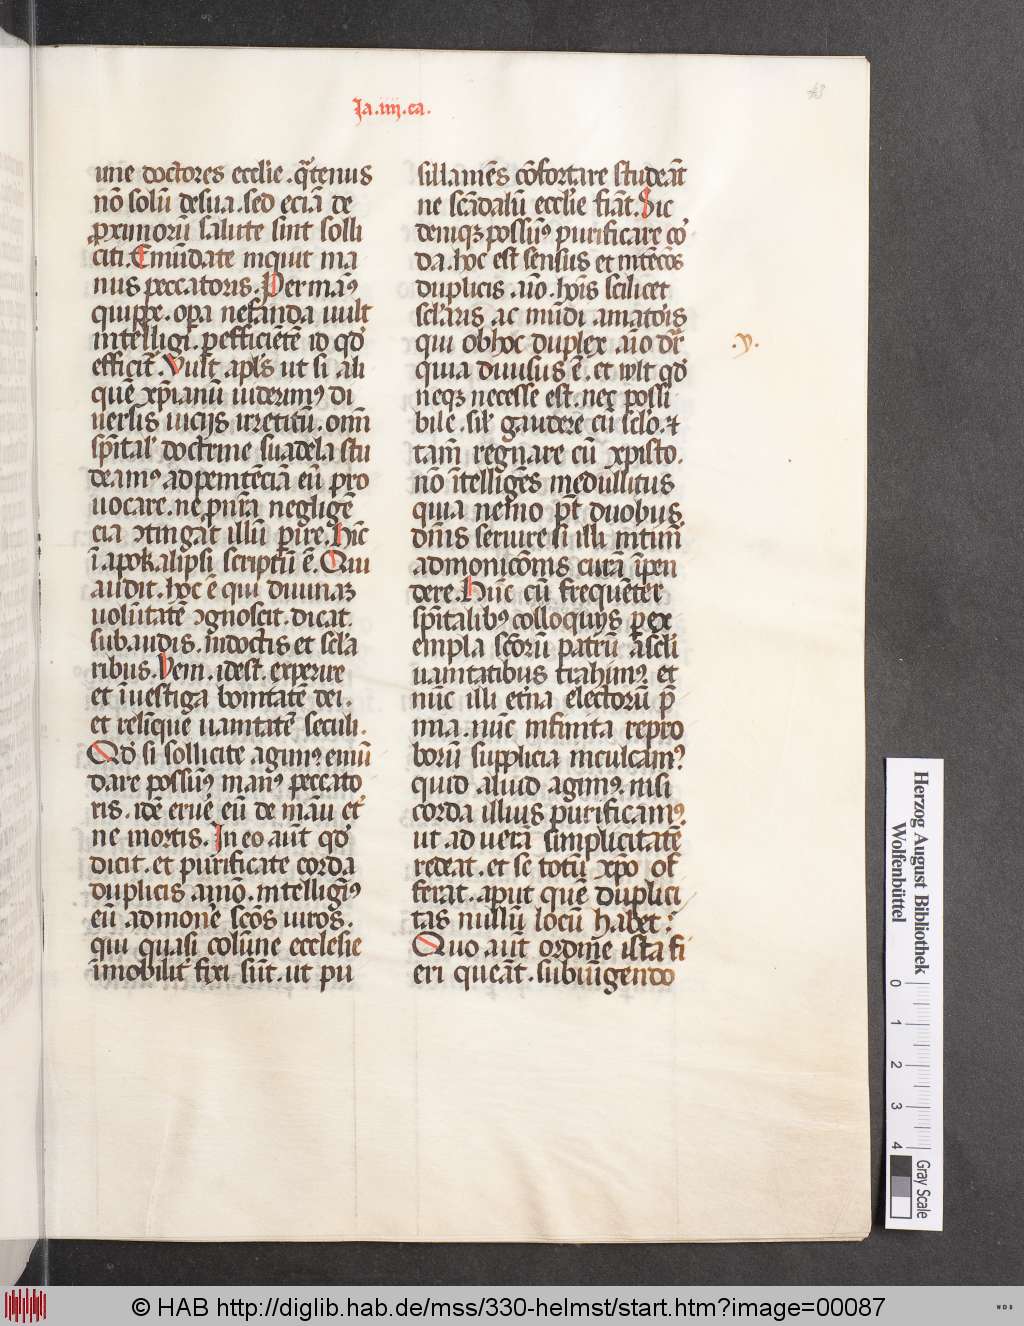 43
Ja.iiij.ca.
une doctores eccl'ie. q̄tenus
nō solū de sua. sed eciā de
ꝓximorū salute sint solli
citi. Emūdate inquit ma
nus peccatoris. Per manꝰ
quippe. oꝑa nefanda uult
intelligi. ꝑ efficiētē id qd'
efficit̄. Vult apl's ut si ali
quē xp̄ianū uiderimꝰ di
uersis uicijs irretitū. om̄i
sp̄ital' doctrine suadela stu
deamꝰ ad penitēciā eū pro
uocare. ne ꝓ nr̄a negligē
cia ↄtingat illū ꝑire. Hīc
ī apokalipsi scriptū ē. Qui
audit. hoc ē qui diuinaꝫ
uolūtatē ↄgnoscit. dicat.
subaudis. īndoctis et scl'a
ribus. Veni. idest. experire
et īuestiga bonitatē dei.
et relīque uanitatē seculi.
Qd' si sollicite agimꝰ emū
dare possumꝰ manꝰ peccato
ris. idē eruē eū de manu et'
ne mortis. In eo aūt qd'
dicit. et purificate corda
duplicis animo. intelligimꝰ
eū admonē scōs uiros.
qui quasi colūne ecclesie
īmobilit' fixi sūt. ut pu
sillanimēs cōfortare studeāt
ne scādalū eccl'ie fiāt. Sic
deniqꝫ possumꝰ purificare co
da. hoc est sensus et intēcōs
duplicis. aīo. hoīs scilicet
scl'aris ac mūdi amatoris
qui ob hoc duplex. aīo dr̄
quia diuisus ē. et uult qd'
neqꝫ necesse est. nex possi
bile. sil' gaudere cū sc'lo. ⁊
tam̄ regnare cū xpisto.
nō ītelligēs medullitus
quia nemo pōt duobus
dn̄is seruire si illi intimī
admonicōnis curā īpen
dere. Hūc cū frequēter
sp̄italibꝰ colloquijs ꝑ ex
empla scōrū patrū a scl'i
uanitatibus trahimꝰ et
nūc illi et̄na electorū p̄
mia. nūc infinita repro
borū supplicia inculcamꝰ
quid aliud agimꝰ. nisi
corda illius purificamꝰ.
ut ad uerā simplicitatē
redeat. et se totū xp̄o of
ferat. aput quē duplici
tas nullū locū habet.
Quo aūt ordine ista fi
eri queāt. subiūgendo
.v.
Herzog August Bibliothek
Wolfenbüttel
0 1 2 3 4
Gray Scale
© HAB http://diglib.hab.de/mss/330-helmst/start.htm?image=00087